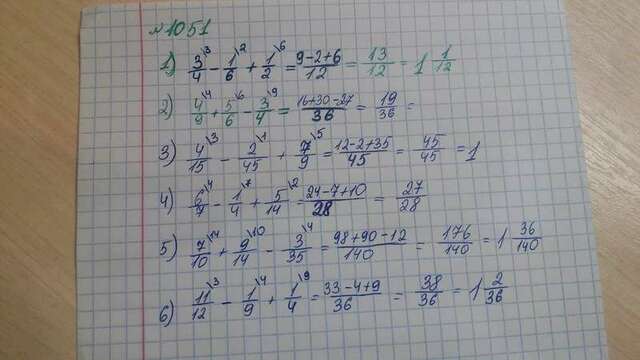 №1051
1) 3/4 \3 - 1/6 \2 + 1/2 \6 = 9-2+6/12 = 13/12 = 1 1/12
2) 4/9 \4 + 5/6 \6 - 3/4 \9 = 16+30-27/36 = 19/36 =
3) 4/15 \3 - 2/45 \1 + 7/9 \5 = 12-2+35/45 = 45/45 = 1
4) 6/7 \4 - 1/4 \7 + 5/14 \2 = 24-7+10/28 = 27/28
5) 7/10 \14 + 9/14 \10 - 3/35 \4 = 98+90-12/140 = 176/140 = 1 36/140
6) 11/12 \3 - 1/9 \4 + 1/4 \9 = 33-4+9/36 = 38/36 = 1 2/36